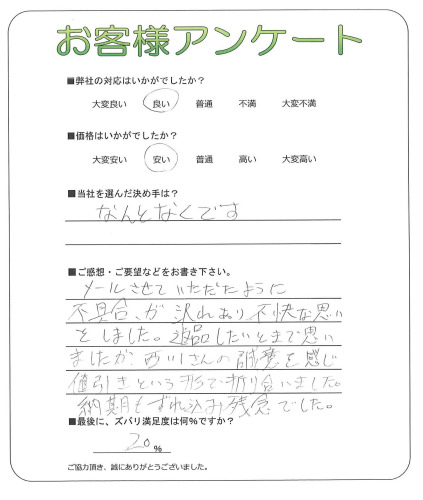 お客様アンケート
■弊社の対応はいかがでしたか？
大変良い 良い 普通 不満 大変不満
■価格はいかがでしたか？
大変安い 安い 普通 高い 大変高い
■当社を選んだ決め手は？
なんとなくです
■ご感想・ご要望などをお書き下さい。
メールさせていただたように
不具合、が 沢れあり 不快な思い
をしました。返品したいとまで思い
ましたが、西川さんの誠意を感じ
値引きという形で折り合いました。
納期もずれ込み残念でした。
■最後に、ズバリ満足度は何%ですか？
20 %
ご協力頂き、誠にありがとうございました。